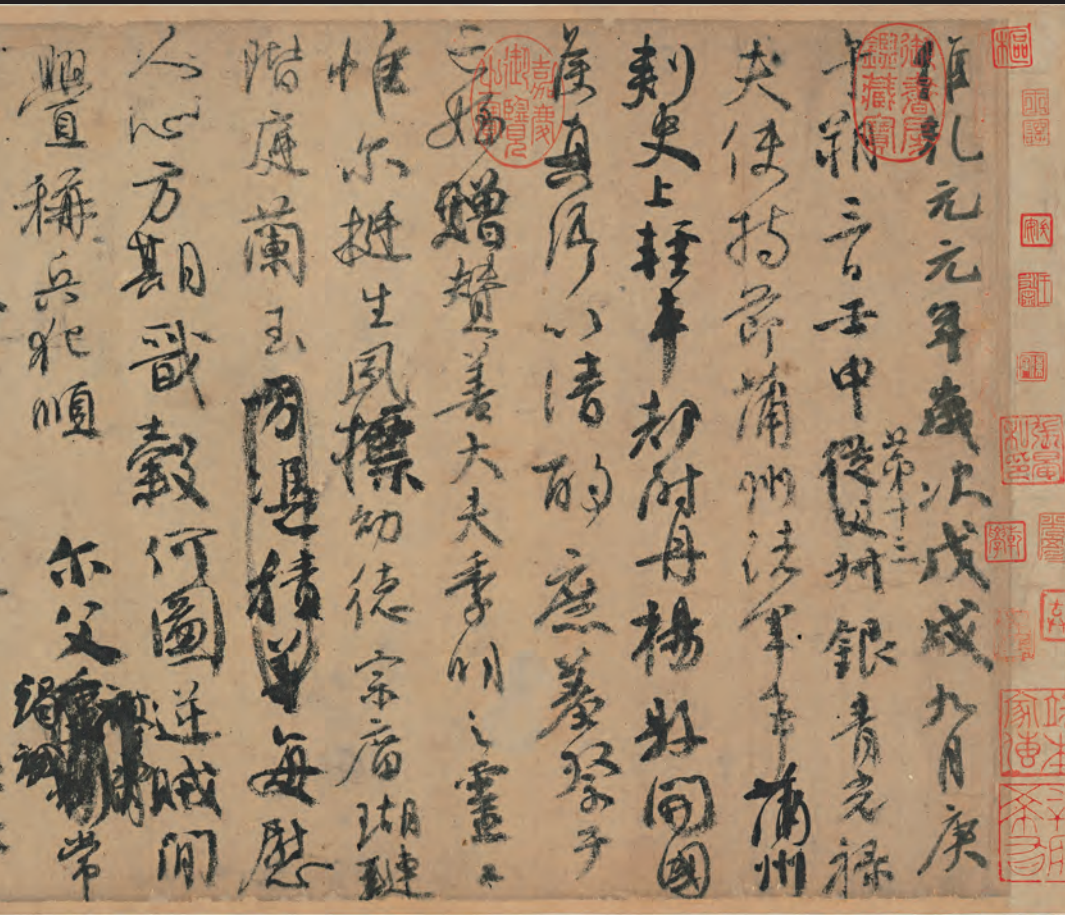 維乾元元年歲次戊戌九月庚
午朔三日壬申從父第十三叔銀青光祿
夫使持節蒲州諸軍事蒲州
刺史上輕車都尉丹楊縣開國
侯真卿以清酌庶羞祭于
亡姪贈贊善大夫季明之靈曰
惟尔挺生夙標幼德宗廟瑚璉
階庭蘭玉方憑積善每慰
人心方期戩穀何圖逆賊閒
釁稱兵犯順尔父竭誠常
御書房鑑藏寶
嘉慶御覽之寶